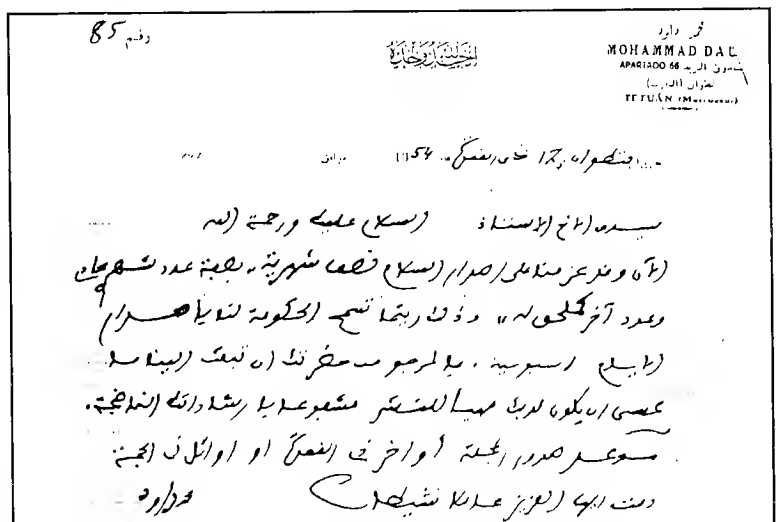 رقم 85
الحمد لله وحده
محمد داود
MOHAMMAD DAU
APARTADO 66 صندوق البريد
تطوان (المغرب)
TETUÁN (Marruecos)
تطوان, 12 ذي القعدة 1354 موافق
سيدي الأخ الأستاذ السلام عليك ورحمة الله
الآن وقد عزمنا على إصدار السلام نصف شهرية، بصفة عدد شهري
وعدد آخر كملحق له، وذلك ريثما تسمح الحكومة لنا بإصدار
السلام أسبوعية. فالمرجو من حضرتك أن تبعث إلينا بما
عسى أن يكون لديك مهيأ للنشر مشفوعا بإرشاداتك الناضجة.
وموعد صدور المجلة أواخر ذي القعدة أو أوائل ذي الحجة
دمت أيها العزيز عاملا نشيطا محمد داود